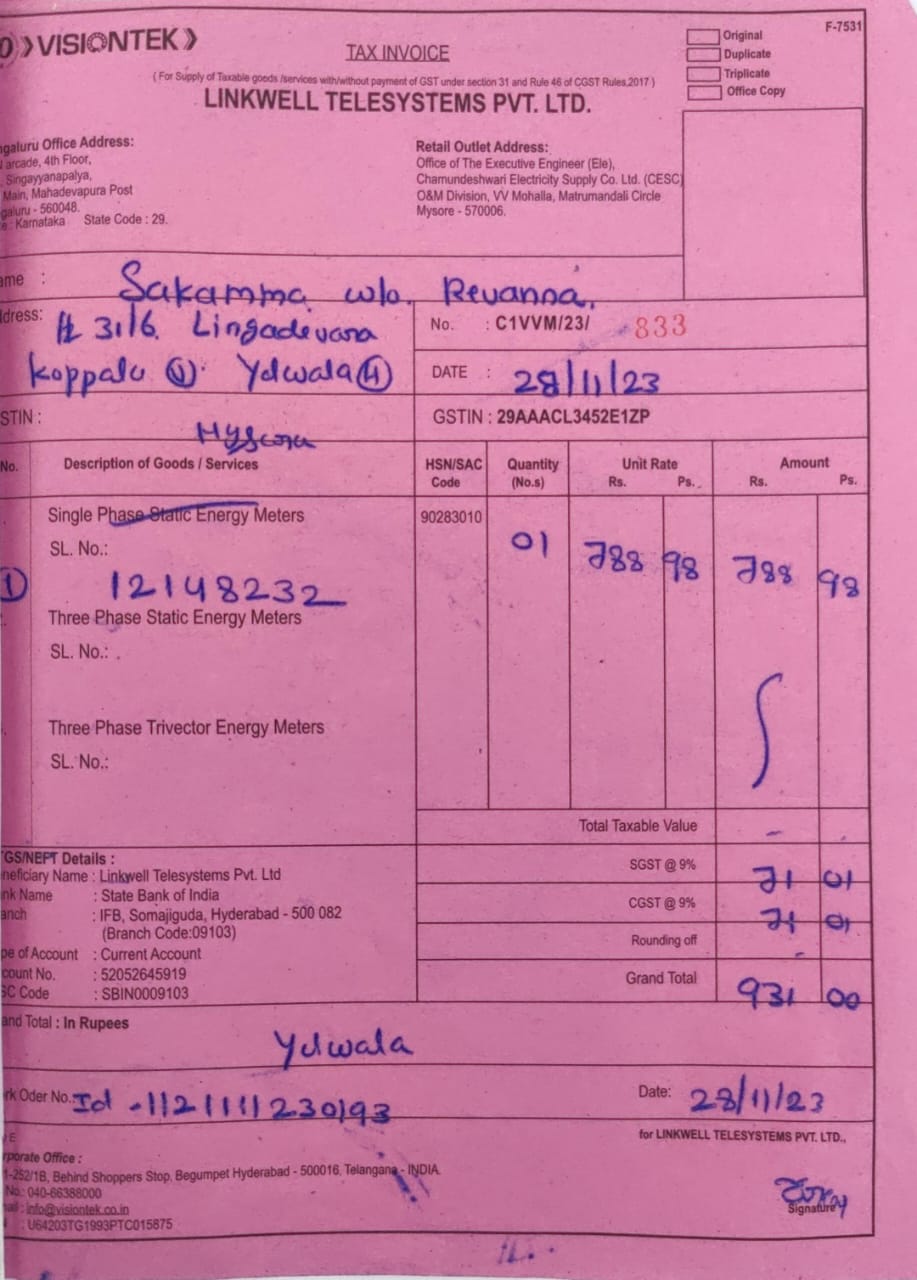 VISIONTEK
F-7531
TAX INVOICE
Original
Duplicate
Triplicate
Office Copy
( For Supply of Taxable goods /services with/without payment of GST under section 31 and Rule 46 of CGST Rules,2017 )
LINKWELL TELESYSTEMS PVT. LTD.
ngaluru Office Address:
arcade, 4th Floor,
Singayyanapalya,
Main, Mahadevapura Post
galuru - 560048.
e : Karnataka State Code : 29.
Retail Outlet Address:
Office of The Executive Engineer (Ele),
Chamundeshwari Electricity Supply Co. Ltd. (CESC)
O&M Division, VV Mohalla, Matrumandali Circle
Mysore - 570006.
ame : Sakamma w/o. Revanna,
ddress: # 31/6. Lingadevara
koppalu (V) Yelwala (H)
Mysore
No. : C1VVM/23/ 833
DATE : 28/11/23
STIN :
GSTIN : 29AAACL3452E1ZP
No. Description of Goods / Services HSN/SAC Code Quantity (No.s) Unit Rate Rs. Ps. Amount Rs. Ps.
Single Phase Static Energy Meters 90283010 01 788 98 788 98
SL. No.:
1 12148232
Three Phase Static Energy Meters
SL. No.:
Three Phase Trivector Energy Meters
SL. No.:
Total Taxable Value -
SGST @ 9% 71 01
CGST @ 9% 71 01
Rounding off -
Grand Total 931 00
TGS/NEFT Details :
neficiary Name : Linkwell Telesystems Pvt. Ltd
nk Name : State Bank of India
anch : IFB, Somajiguda, Hyderabad - 500 082
(Branch Code:09103)
pe of Account : Current Account
count No. : 52052645919
SC Code : SBIN0009103
and Total : In Rupees
Yelwala
rk Oder No. Id - 11211111230193
Date: 28/11/23
for LINKWELL TELESYSTEMS PVT. LTD.,
rporate Office :
1-252/1B, Behind Shoppers Stop, Begumpet Hyderabad - 500016, Telangana - INDIA.
No.: 040-66388000
ail : info@visiontek.co.in
: U64203TG1993PTC015875
Signature